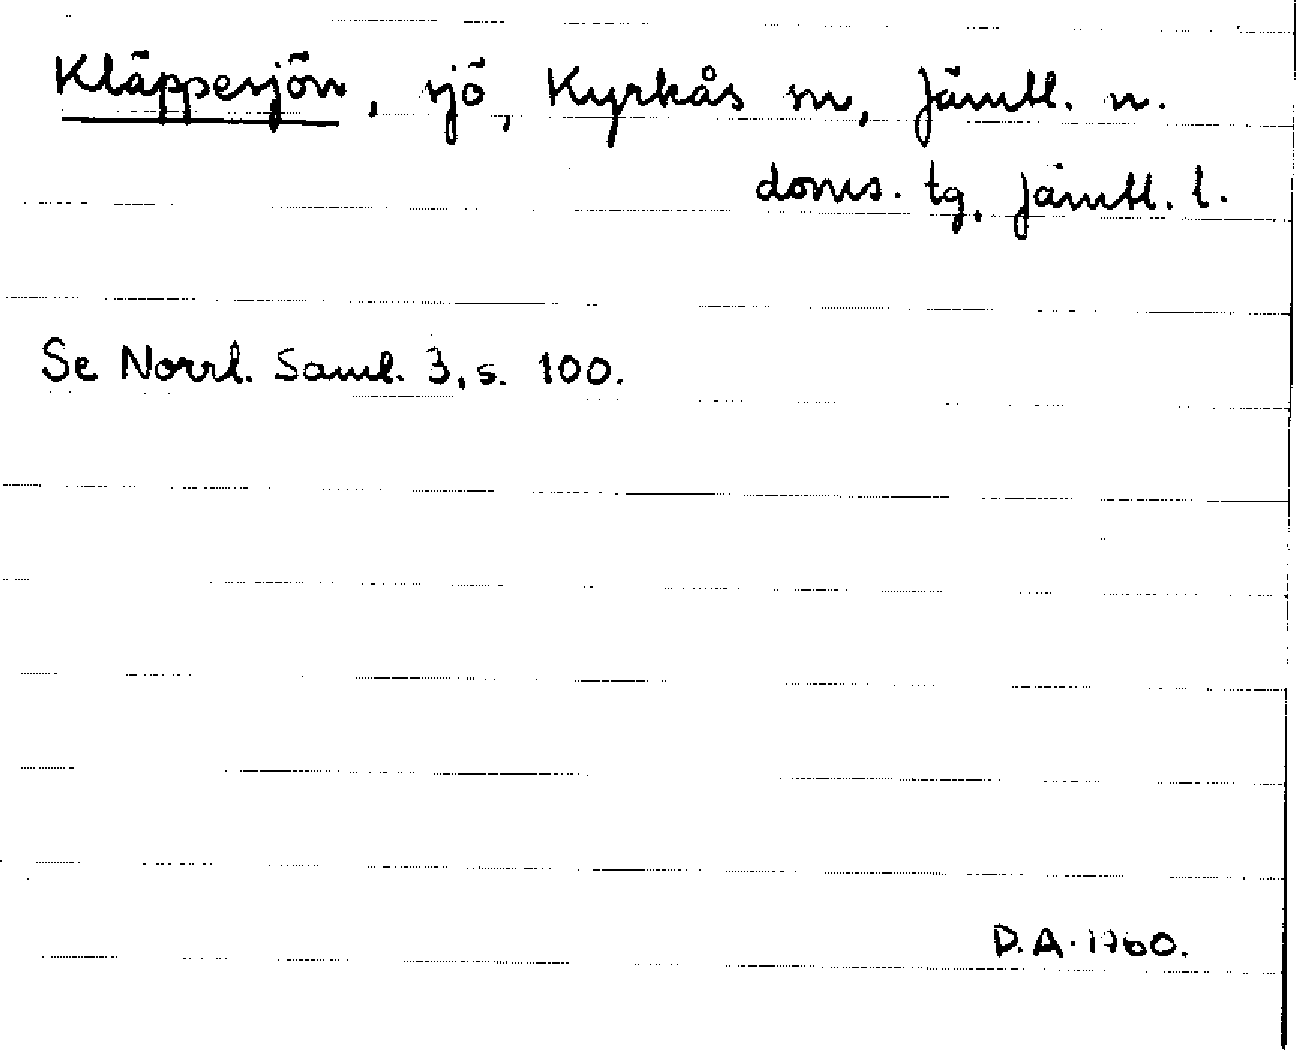 Kläppesjön, sjö, Kyrkås sn, Jämtl. n.
doms. tg. Jämtl. l.
Se Norrl. Saml. 3, s. 100.
D.A. 1960.